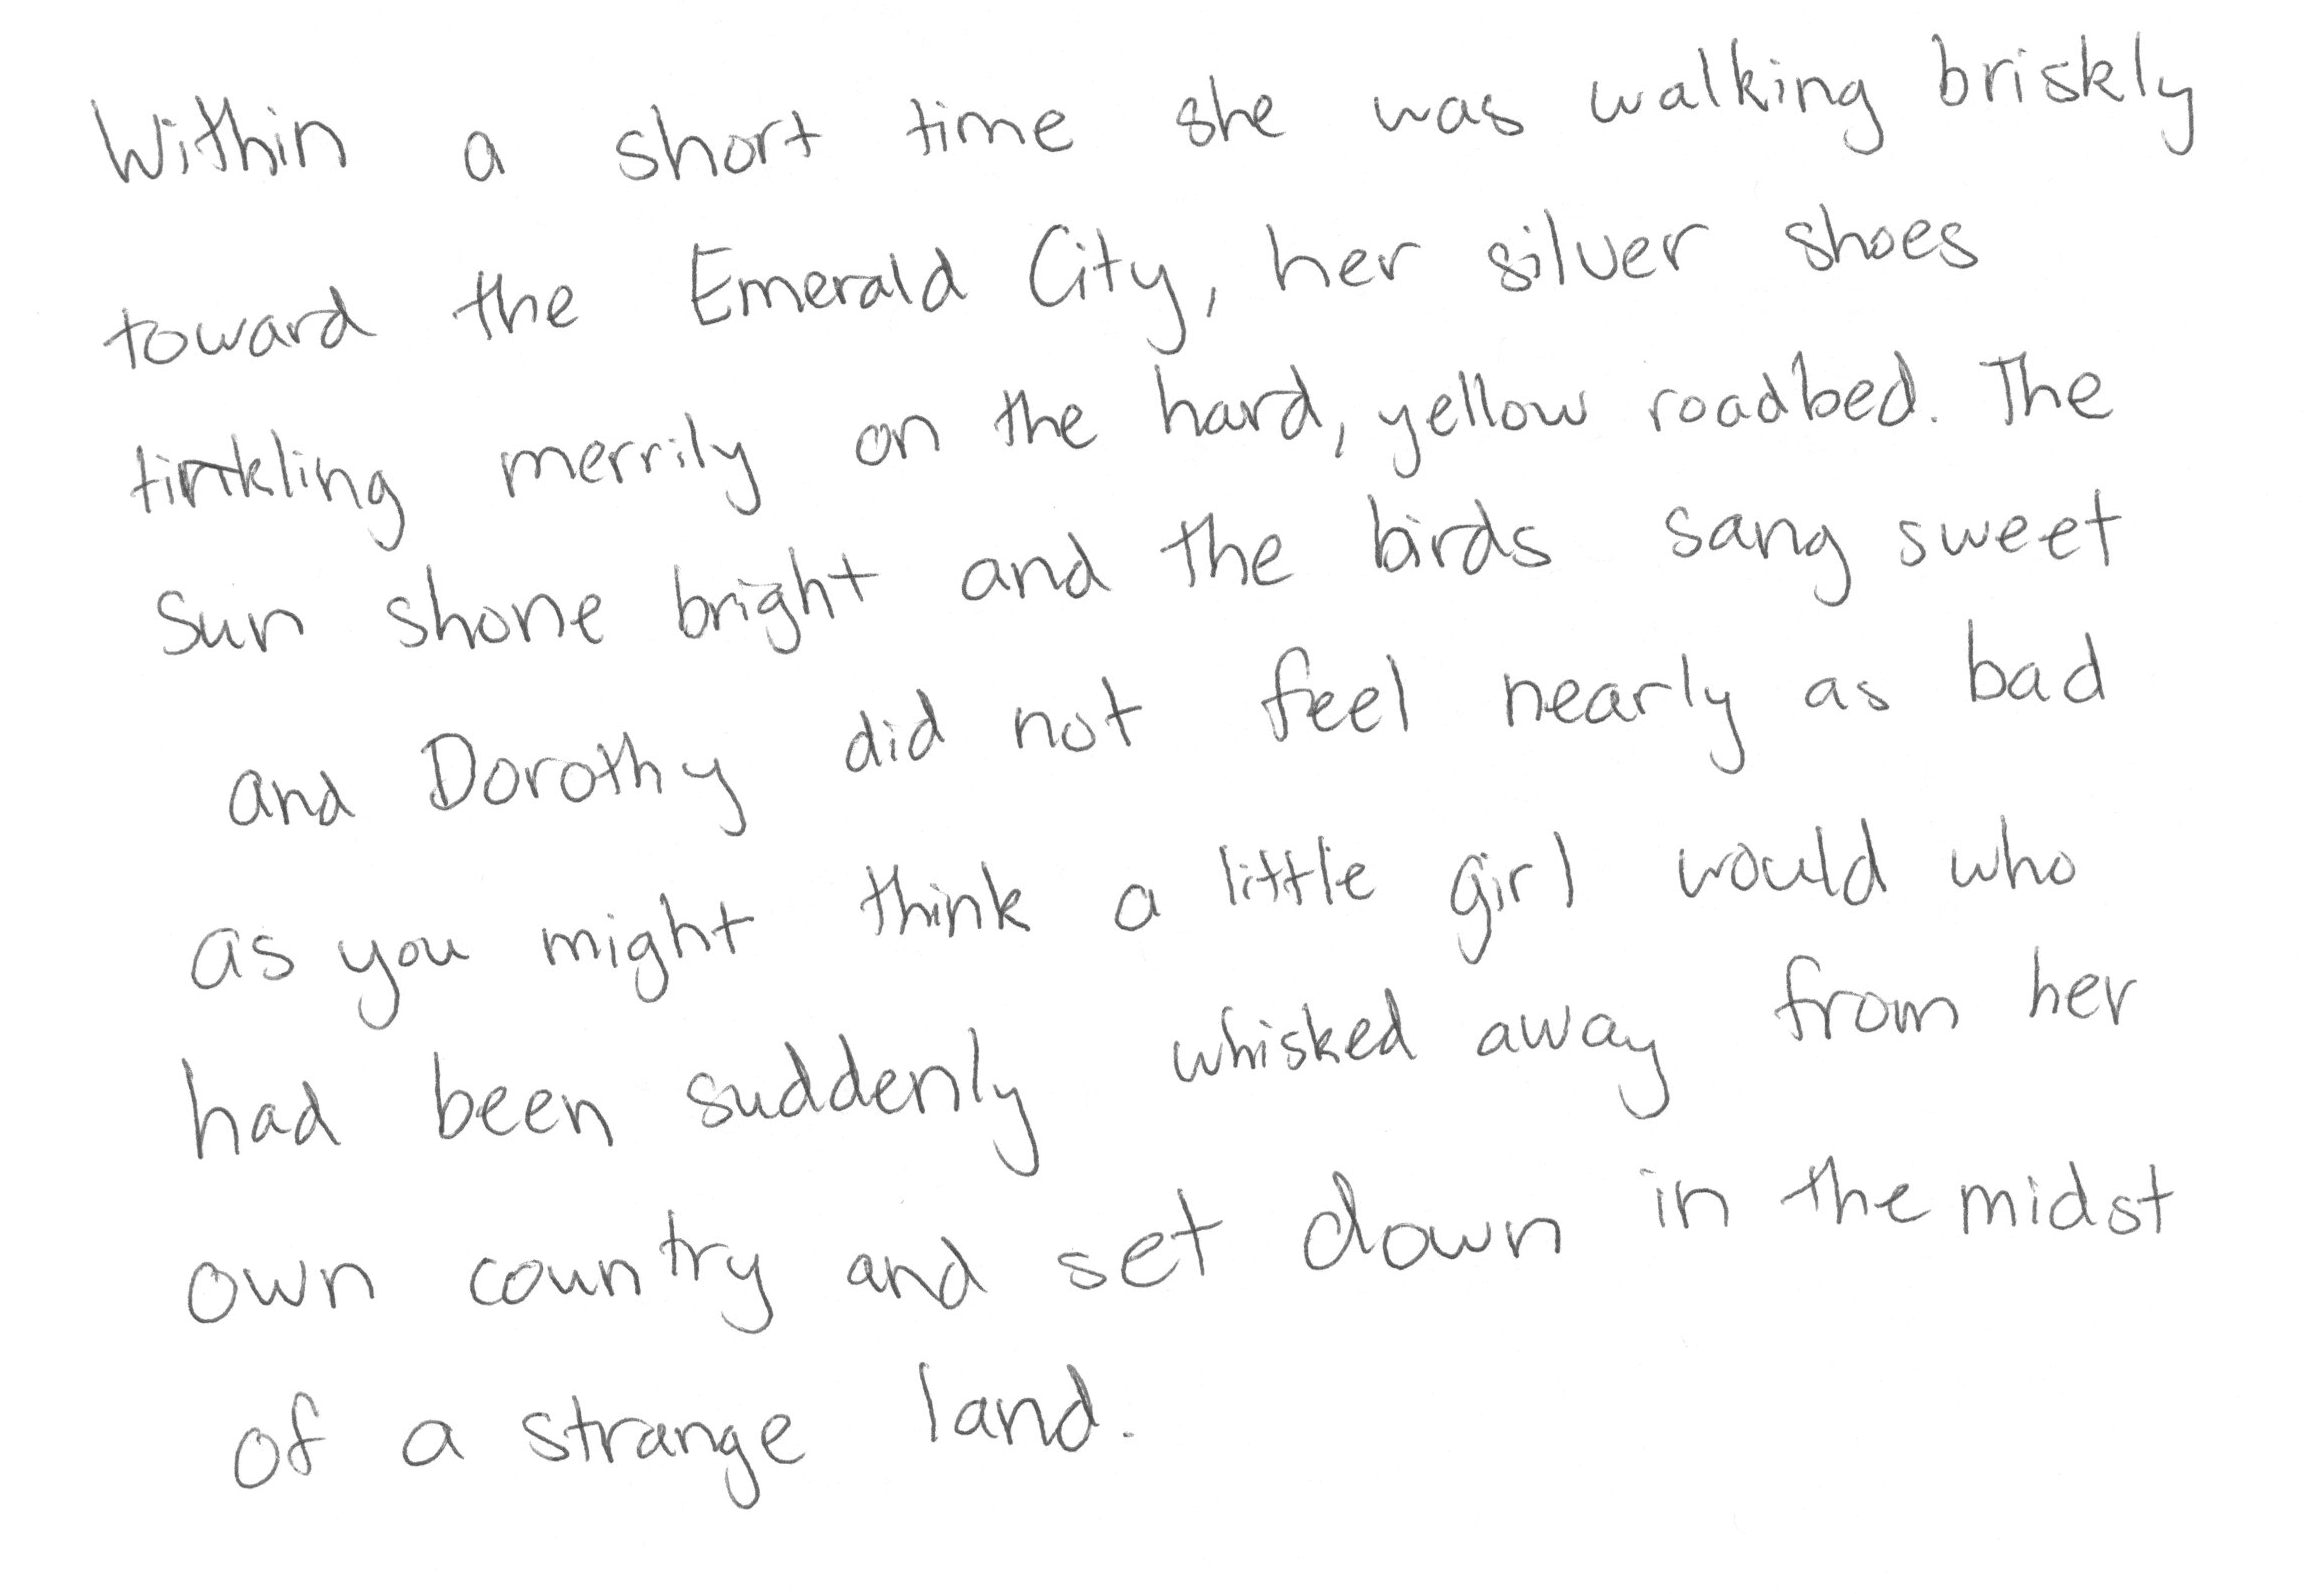 Within a short time she was walking briskly
toward the Emerald City, her silver shoes
tinkling merrily on the hard, yellow roadbed. The
sun shone bright and the birds sang sweet
and Dorothy did not feel nearly as bad
as you might think a little girl would who
had been suddenly whisked away from her
own country and set down in the midst
of a strange land.